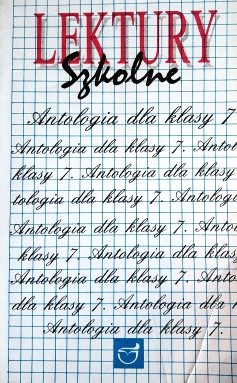 LEKTURY
Szkolne
Antologia dla klasy 7
Antologia dla klasy 7. Antol
klasy 7. Antologia dla klasy
tologia dla klasy 7. Antologi
Antologia dla klasy 7. Anto
klasy 7. Antologia dla klas
Antologia dla klasy 7. Anto
dla klasy 7. Antologia dla
Antologia dla klasy 7.